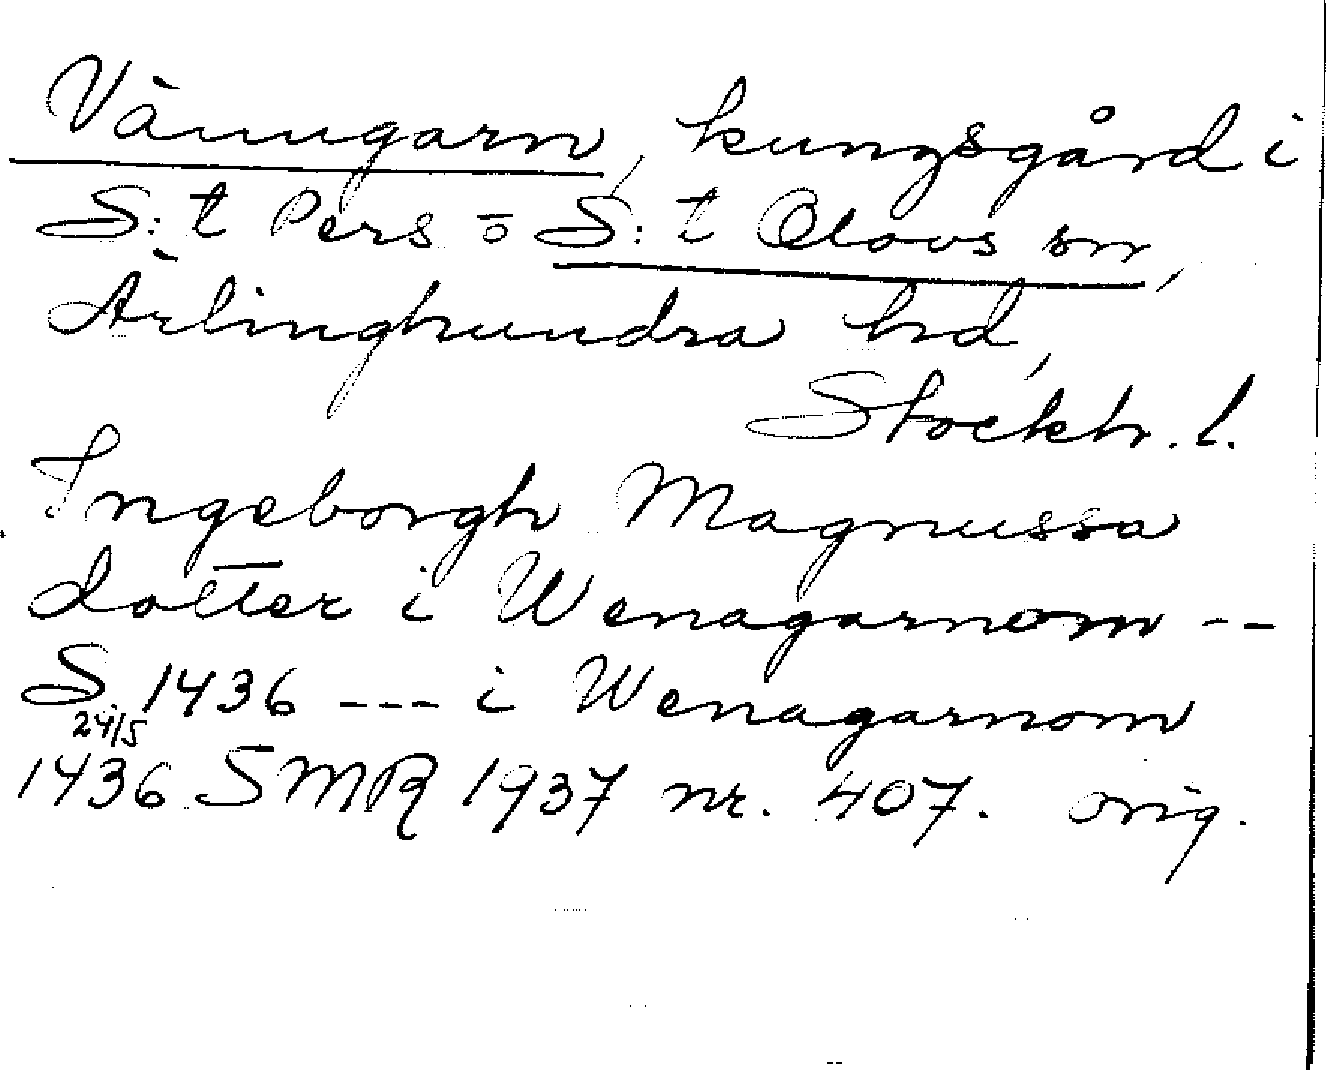 Vänngarn, kungsgård i
S:t Pers = S:t Olovs sn,
Ärlinghundra hd,
Stockh. l.
Ingeborgh Magnussa
dotter i Wenagarnom --
S 1436 --- i Wenagarnom
24/5
1436 SMR 1937 nr. 407. orig.